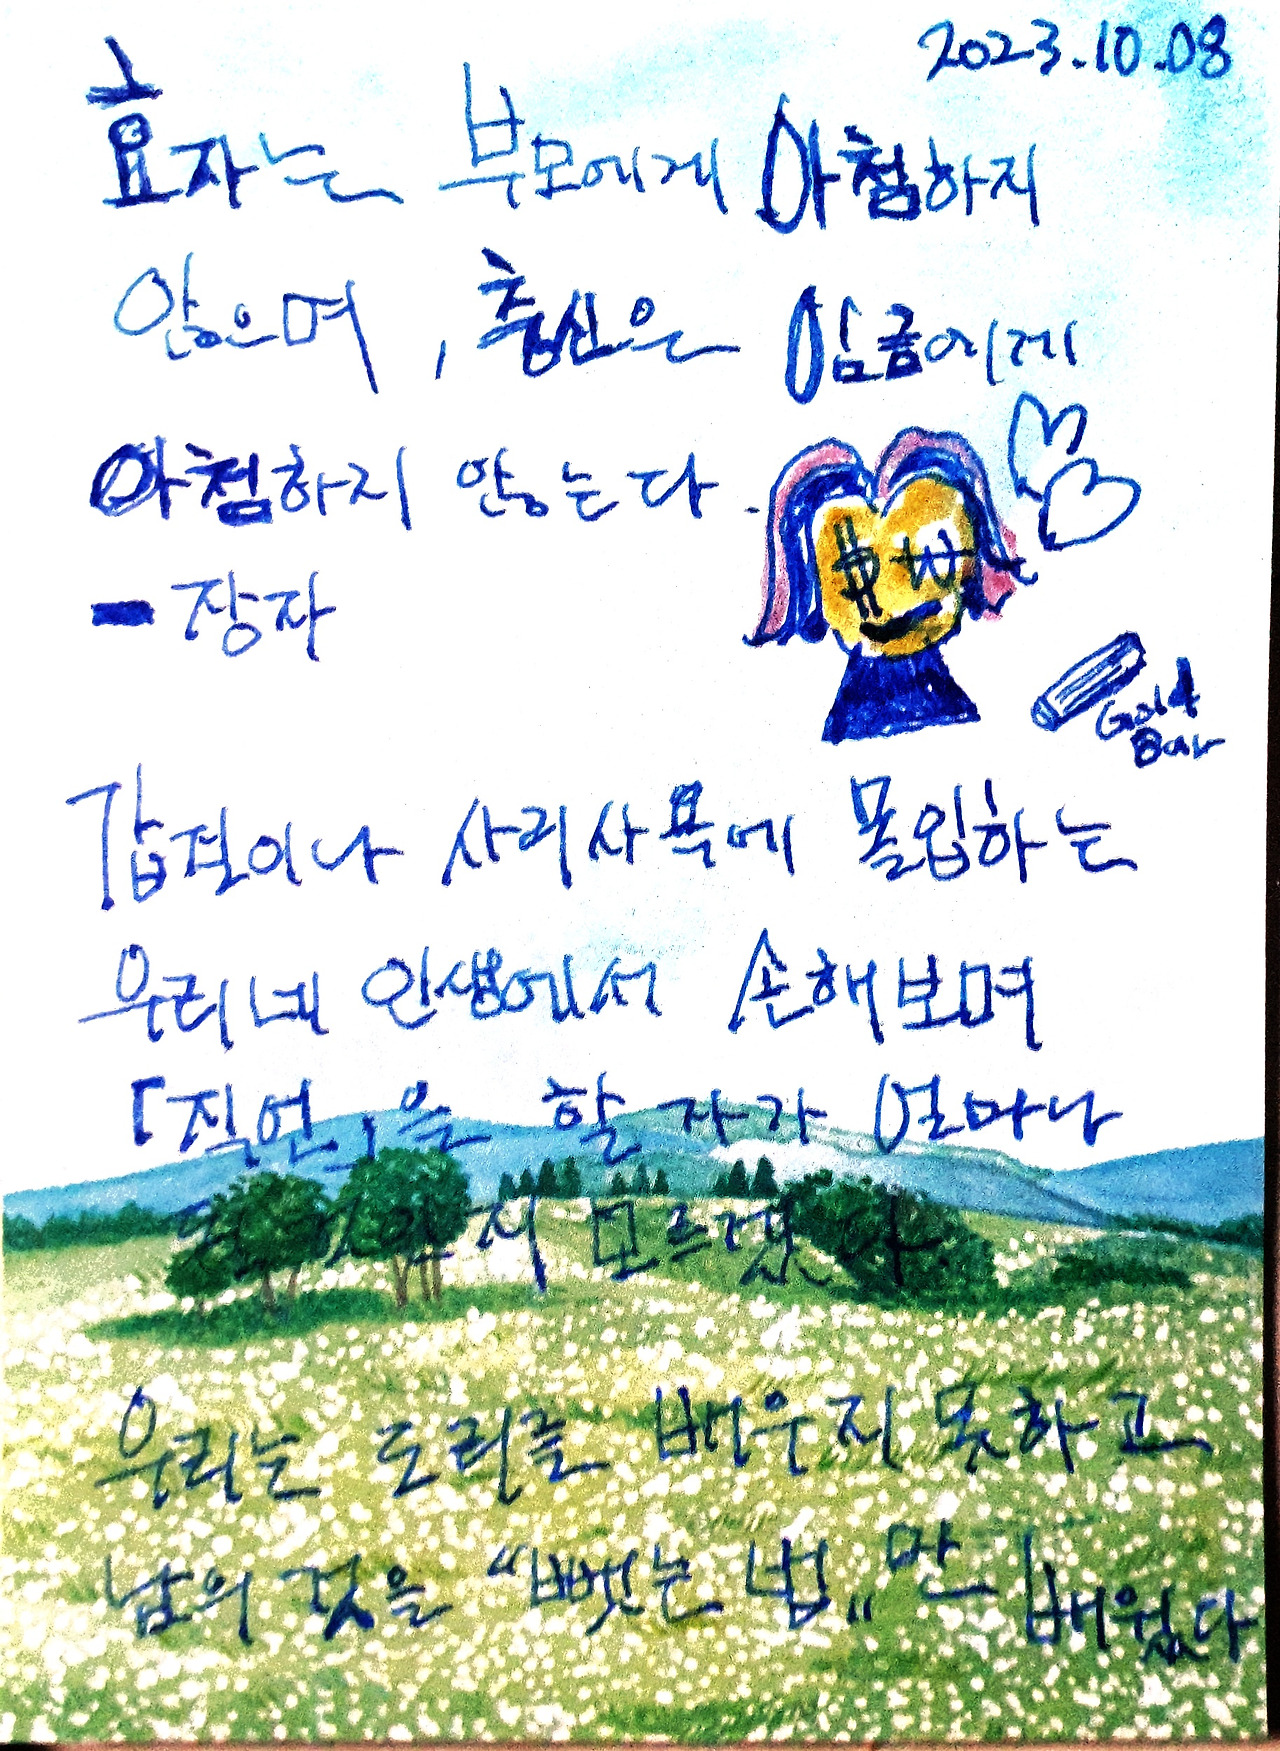 2023.10.08
효자는 부모에게 아첨하지
않으며, 충신은 임금에게
아첨하지 않는다.
- 장자
Gold
Bar
갑질이나 사리사욕에 몰입하는
우리네 인생에서 손해보며
「직언」을 할 자가 얼마나
모르겠다.
우리는 도리를 배우지 못하고
남의 것을 “뺏는 법„만 배웠다